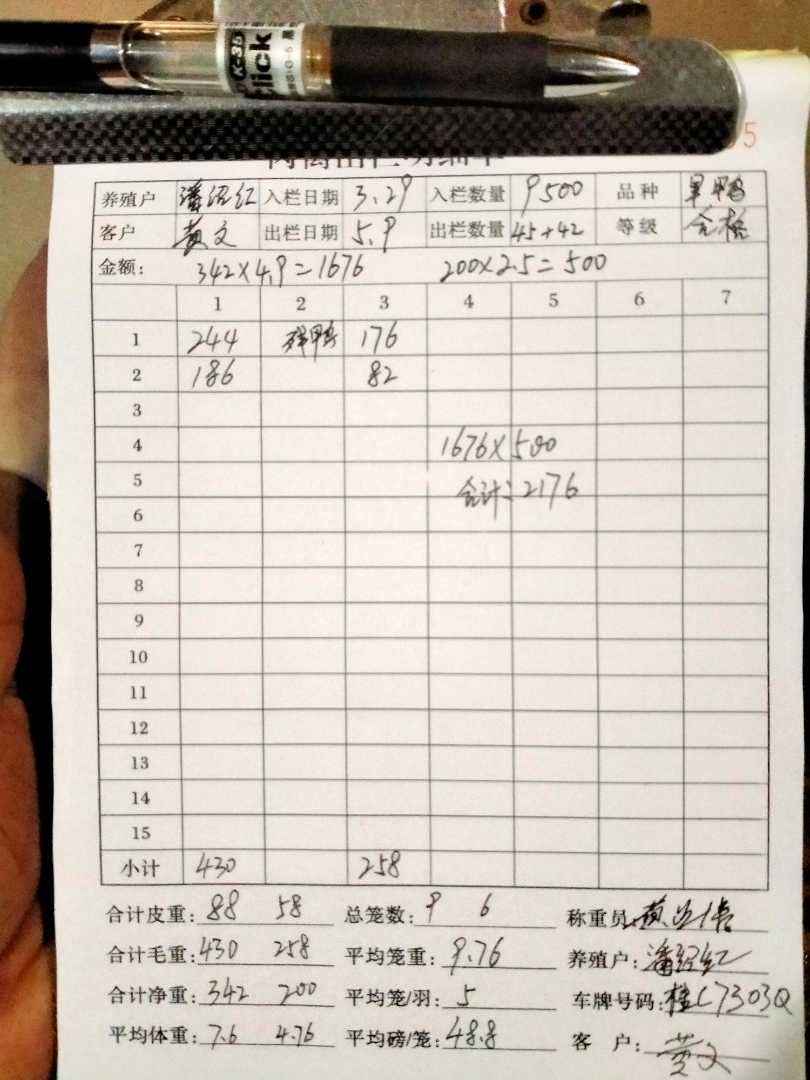 K-35
Click
G-5
5
养殖户 潘绍红 入栏日期 3.29 入栏数量 9500 品种
客户 黄文 出栏日期 5.9 出栏数量 45+42 等级 合格
金额: 342×4.9=1676 200×2.5=500
1 2 3 4 5 6 7
1 244 残鸭 176
2 186 82
3
4 1676×500
5 合计:2176
6
7
8
9
10
11
12
13
14
15
小计 430 258
合计皮重: 88 58 总笼数: 9 6 称重员:
合计毛重: 430 258 平均笼重: 9.76 养殖户: 潘绍红
合计净重: 342 200 平均笼/羽: 5 车牌号码: 桂C7303Q
平均体重: 7.6 4.76 平均磅/笼: 48.8 客 户: 黄文